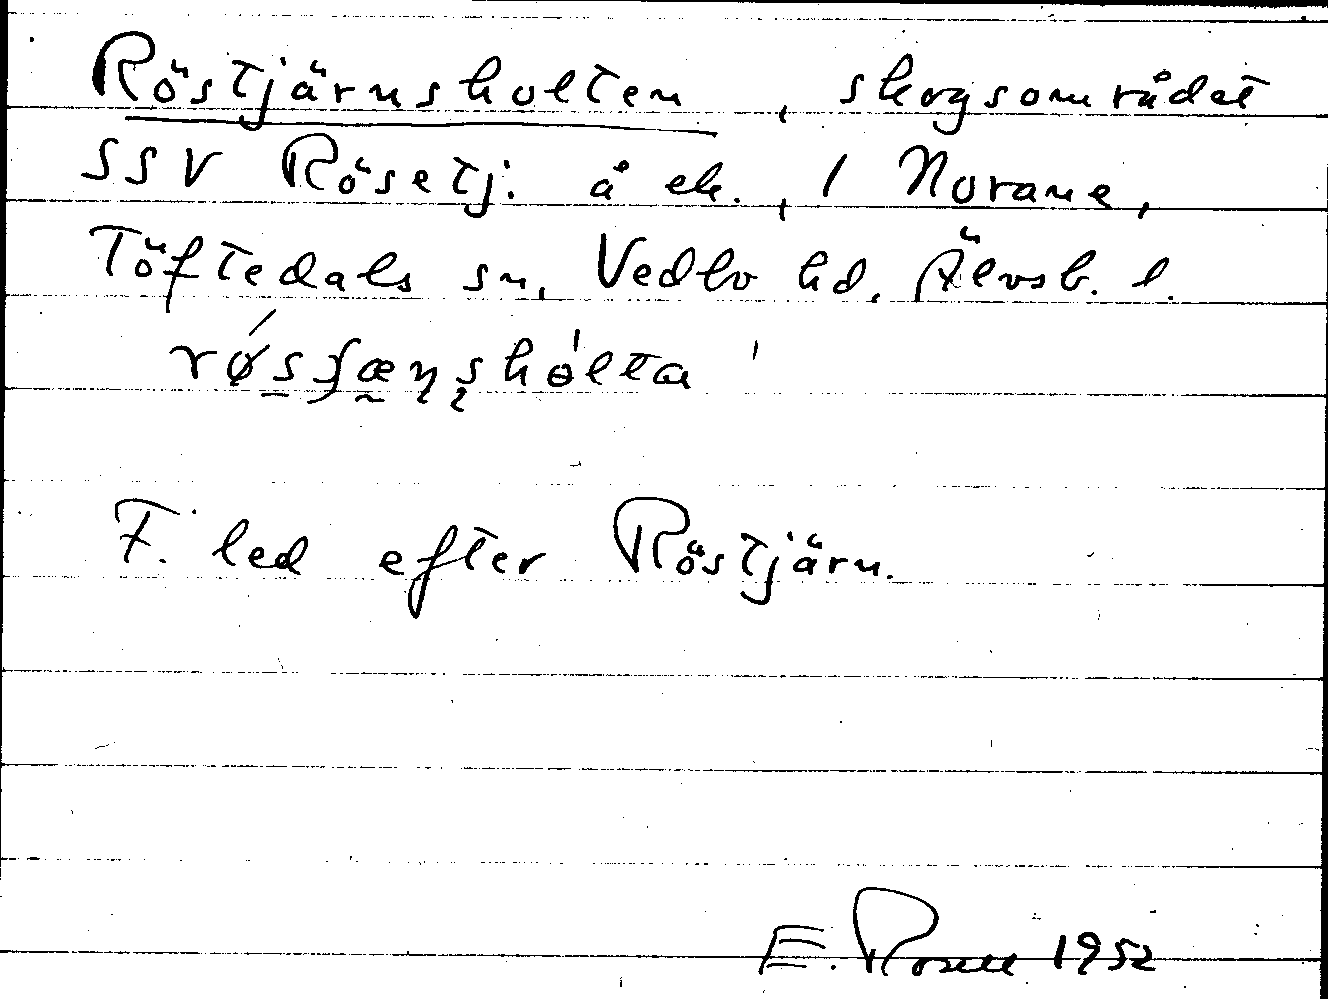 Röstjärnsholten, skogsområdet
SSV Rösetj. å ek., 1 Norane,
Töftedals sn, Vedbo hd, Älvsb. l.
røsʃæɳʂhȯlta
F. led efter Röstjärn.
E. Rosell 1952